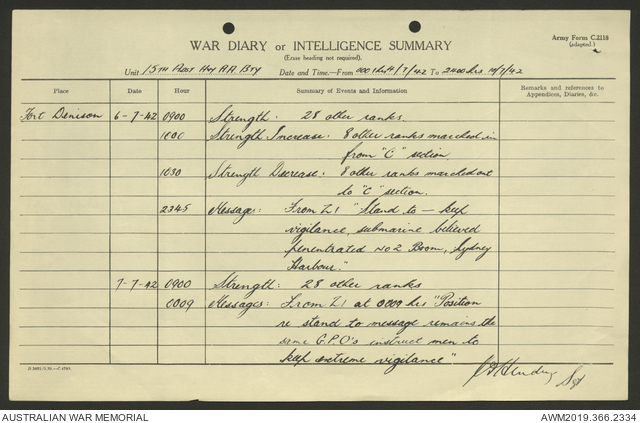 Army Form C.2118
(adapted.)
WAR DIARY or INTELLIGENCE SUMMARY
(Erase heading not required).
Unit 15TH Aust Hvy A.A. Bty Date and Time.—From 0001hrs 1/7/42 To 2400 hrs 10/7/42
Place Date Hour Summary of Events and Information Remarks and references to
Appendices, Diaries, &c.
Fort Denison 6-7-42 0900 Strength: 28 other ranks
1000 Strength Increase: 8 other ranks marched in
from "C" section
1030 Strength Decrease: 8 other ranks marched out
to "C" section.
2345 Message: From Z1 "Stand to — keep
vigilance, submarine believed
penentrated No2 Boom, Sydney
Harbour."
7-7-42 0900 Strength: 28 other ranks
0009 Messages: From Z1 at 0000 hrs "Position
re stand to message remains the
same G.P.O's instruct men to
keep extreme vigilance"
Sgt
AUSTRALIAN WAR MEMORIAL AWM2019.366.2334